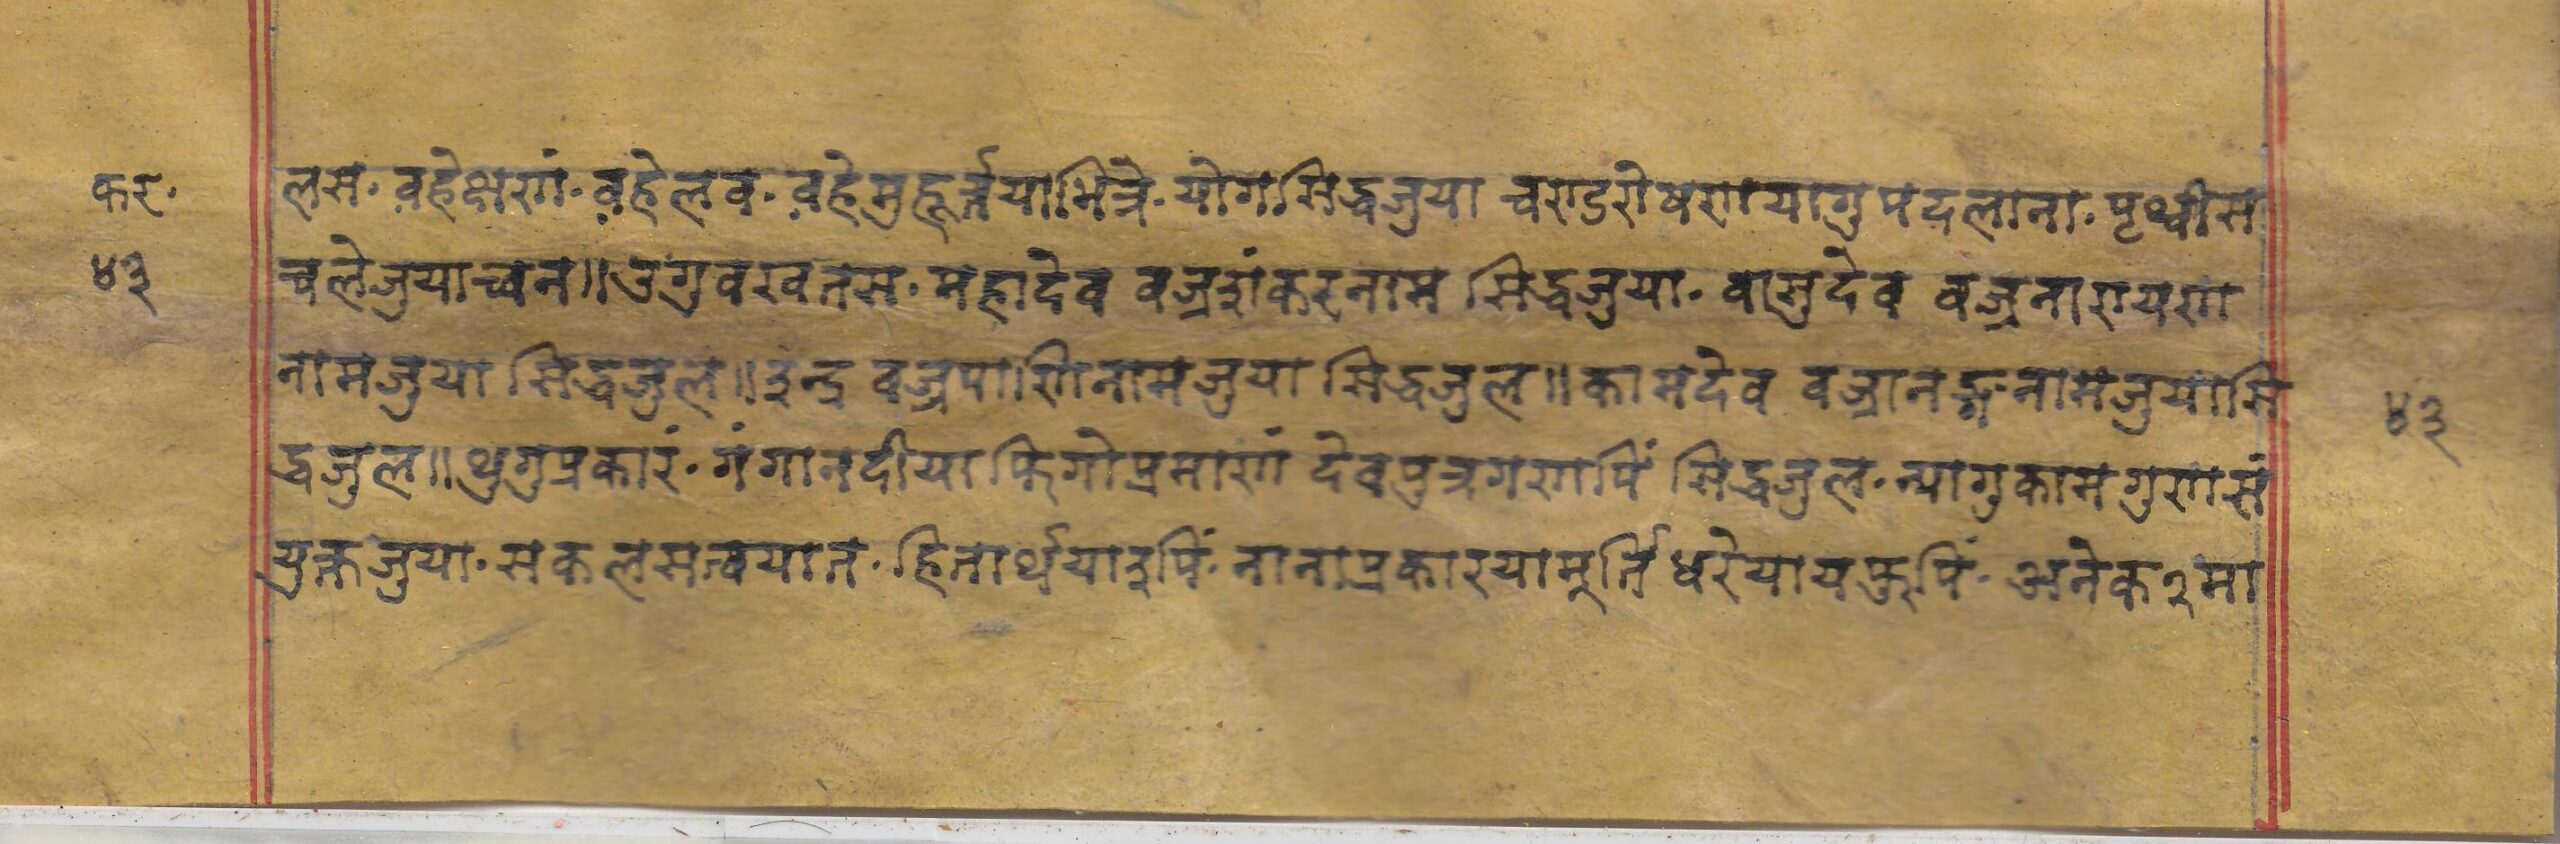 कर. लस. वहेक्षणं. वहेलव. वहेमुहूर्त्तयाभित्रे. योगसिद्धजुया चण्डरोषणयागुपदलाना. पृथ्वीस
४३ चलेजुयाच्वन॥ उगुवखतस. महादेव वज्रशंकरनाम सिद्धजुया. वासुदेव वज्रनारायण
नामजुया सिद्धजुल॥ इन्द्र वज्रपाणिनामजुया सिद्धजुल॥ कामदेव वज्रानङ्गनामजुयासि ४३
द्धजुल॥ थुगुप्रकारं. गंगानदीयाफिगोप्रमाणं देवपुत्रगणपिं सिद्धजुल. न्यागुकामगुणसं
युक्तजुया. सकलसत्वयात. हितार्थयाइपिं. नानाप्रकारयामूर्त्तिधरेयायफुपिं. अनेक२मा